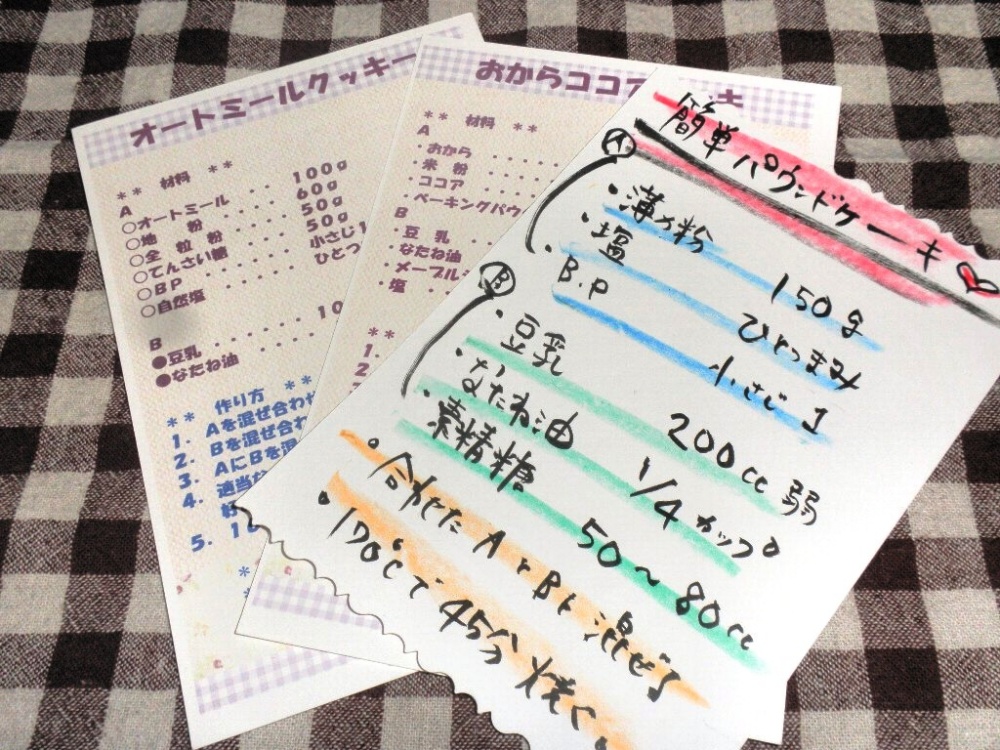 オートミールクッキー
** 材料 **
A
○オートミール ・・・・ 100g
○地 粉 ・・・・・・ 60g
○全 粒 粉 ・・・・・ 50g
○てんさい糖 ・・・・・ 50g
○BP ・・・・・・ 小さじ1
○自然塩 ・・・・・ ひとつ
B
●豆乳 ・・・・・・ 10
●なたね油 ・・・・
** 作り方 **
1. Aを混ぜ合わせ
2. Bを混ぜ合わ
3. AにBを混
4. 適当な
5. 1
おからココア
** 材料 **
A
・おから ・・・・・
・米 粉 ・・・・
・ココア ・・・
・ベーキングパウ
B
・豆 乳 ・・・・
・なたね油 ・・
・メープルシ
・塩 ・・・
**
1.
2
簡単パウンドケーキ♡
A
・薄力粉 150g
・塩 ひとつまみ
・B.P 小さじ1
B
・豆乳 200cc弱
・なたね油 1/4カップ
・素精糖 50~80cc
・合わせたAとBを混ぜる
・170℃で45分焼く。